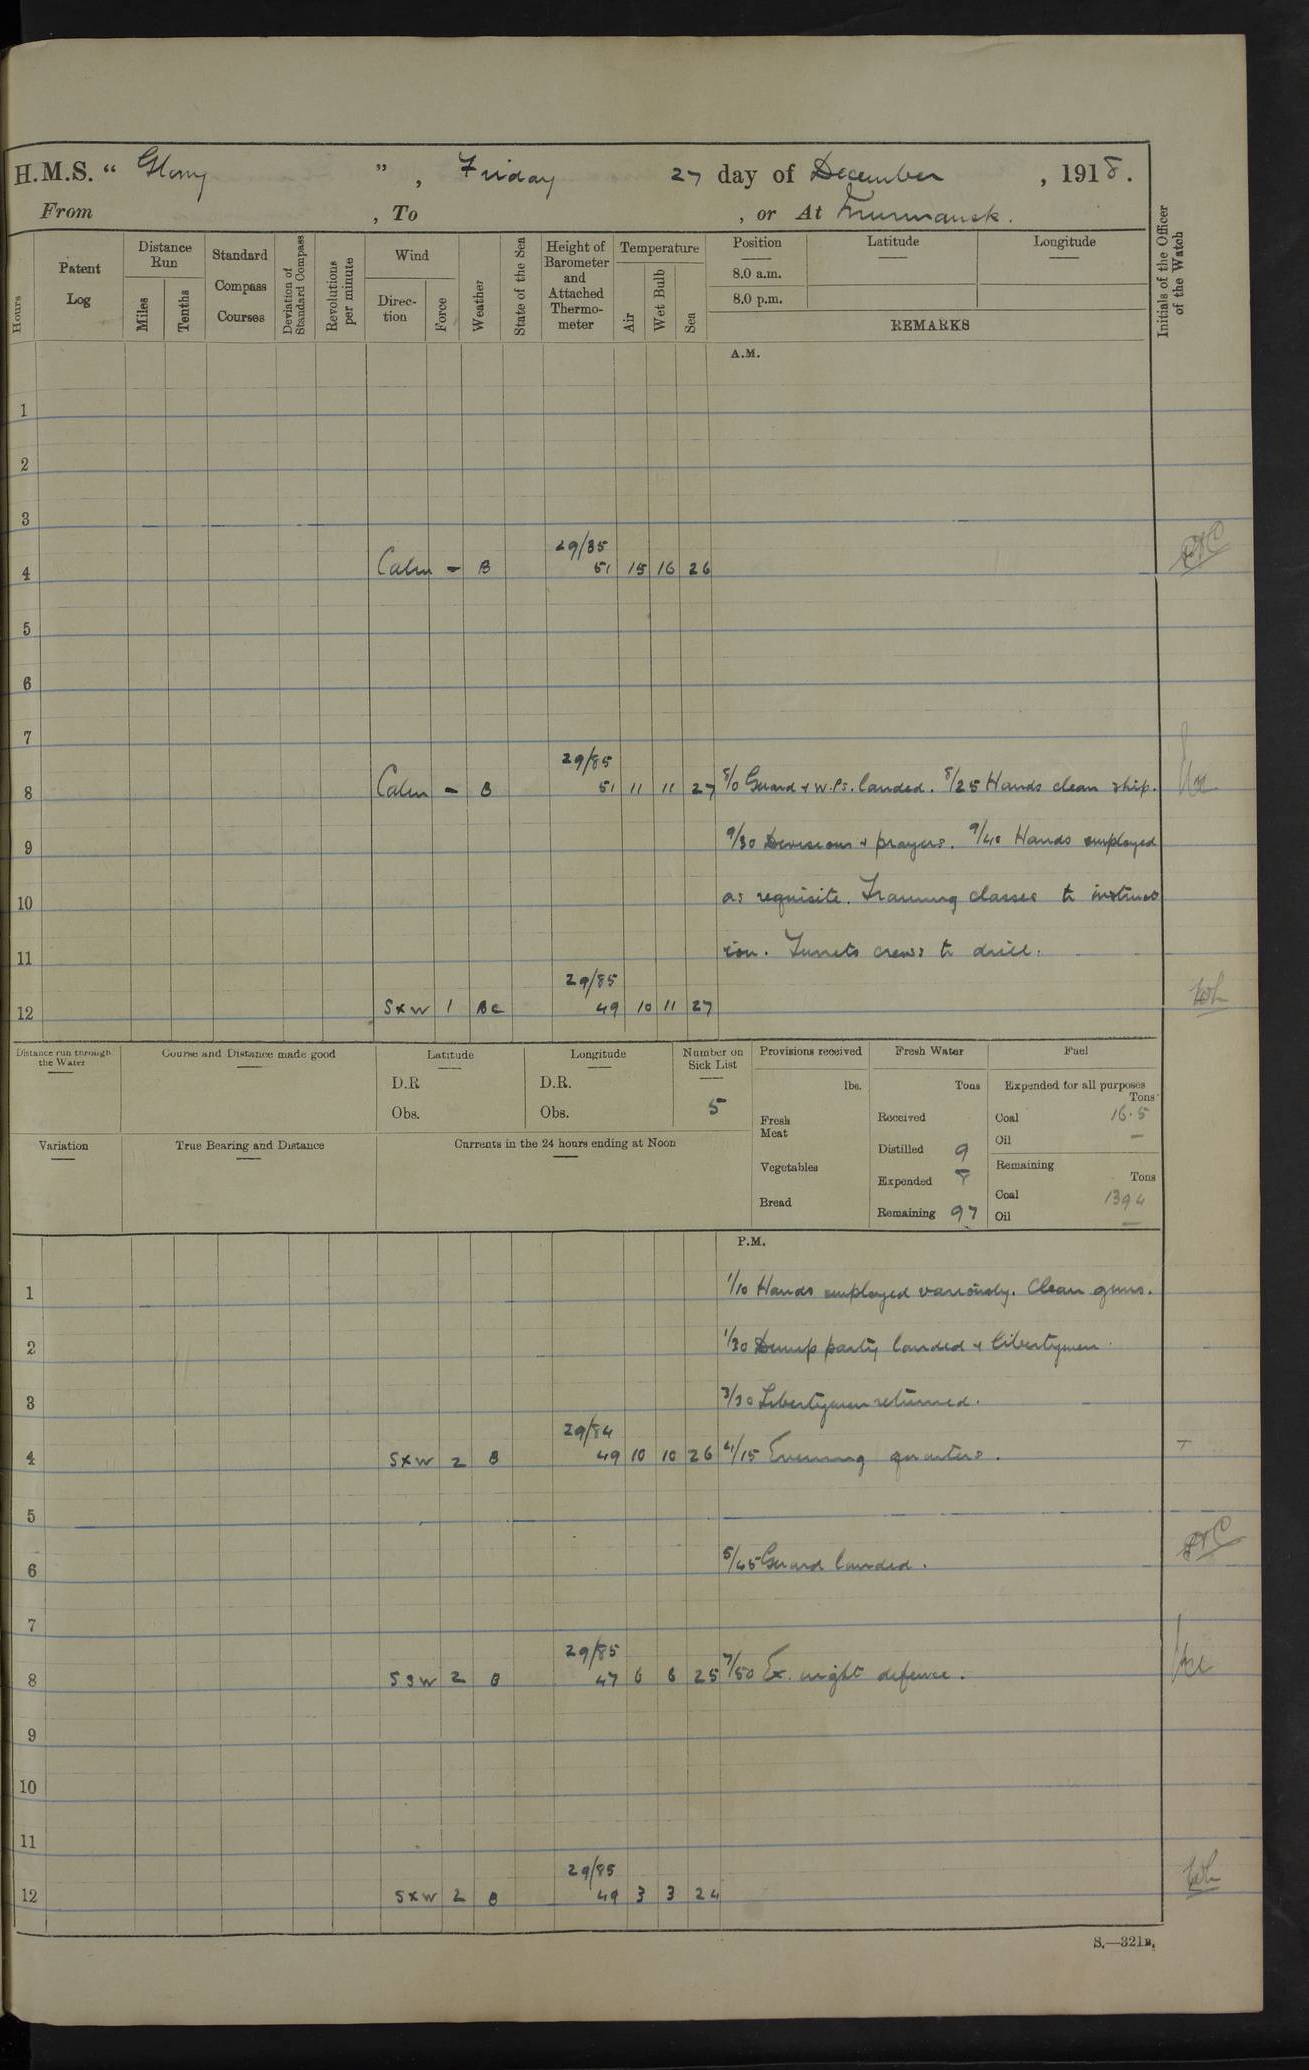 H.M.S. “ Glory ” , Friday 27 day of December , 1918.
From , To , or At Murmansk.
Hours
Patent Log
Distance Run
Miles
Tenths
Standard Compass Courses
Deviation of Standard Compass
Revolutions per minute
Wind
Direction
Force
Weather
State of the Sea
Height of Barometer and Attached Thermometer
Temperature
Air
Wet Bulb
Sea
Position
8.0 a.m.
8.0 p.m.
Latitude
Longitude
REMARKS
Initials of the Officer of the Watch
A.M.
1
2
3
29/85
4 Calm - B 51 15 16 26
5
6
7
29/85
8 Calm - B 51 11 11 27 8/0 Guard + W.Ps. landed. 8/25 Hands clean ship.
9 9/30 Divisions + prayers. 9/40 Hands employed
10 as requisite. Training classes to instruct
11 ion. Turrets crews to drill.
29/85
12 SxW 1 BC 49 10 11 27
Distance run through the Water
Course and Distance made good
Latitude
D.R
Obs.
Longitude
D.R.
Obs.
Number on Sick List
5
Provisions received
lbs.
Fresh Meat
Vegetables
Bread
Fresh Water
Tons
Received
Distilled 9
Expended 8
Remaining 97
Fuel
Expended for all purposes
Tons
Coal 16.5
Oil —
Remaining
Tons
Coal 1394
Oil —
Variation
True Bearing and Distance
Currents in the 24 hours ending at Noon
P.M.
1 1/10 Hands employed variously. Clean guns.
2 1/30 Dump party landed + libertymen.
3 3/30 Libertymen returned.
29/84
4 SxW 2 B 49 10 10 26 4/15 Evening quarters.
5
6 5/45 Guard landed.
7
29/85
8 SSW 2 B 47 6 6 25 7/50 Ex. night defence.
9
10
11
29/85
12 SxW 2 B 49 3 3 24
S.—321B.